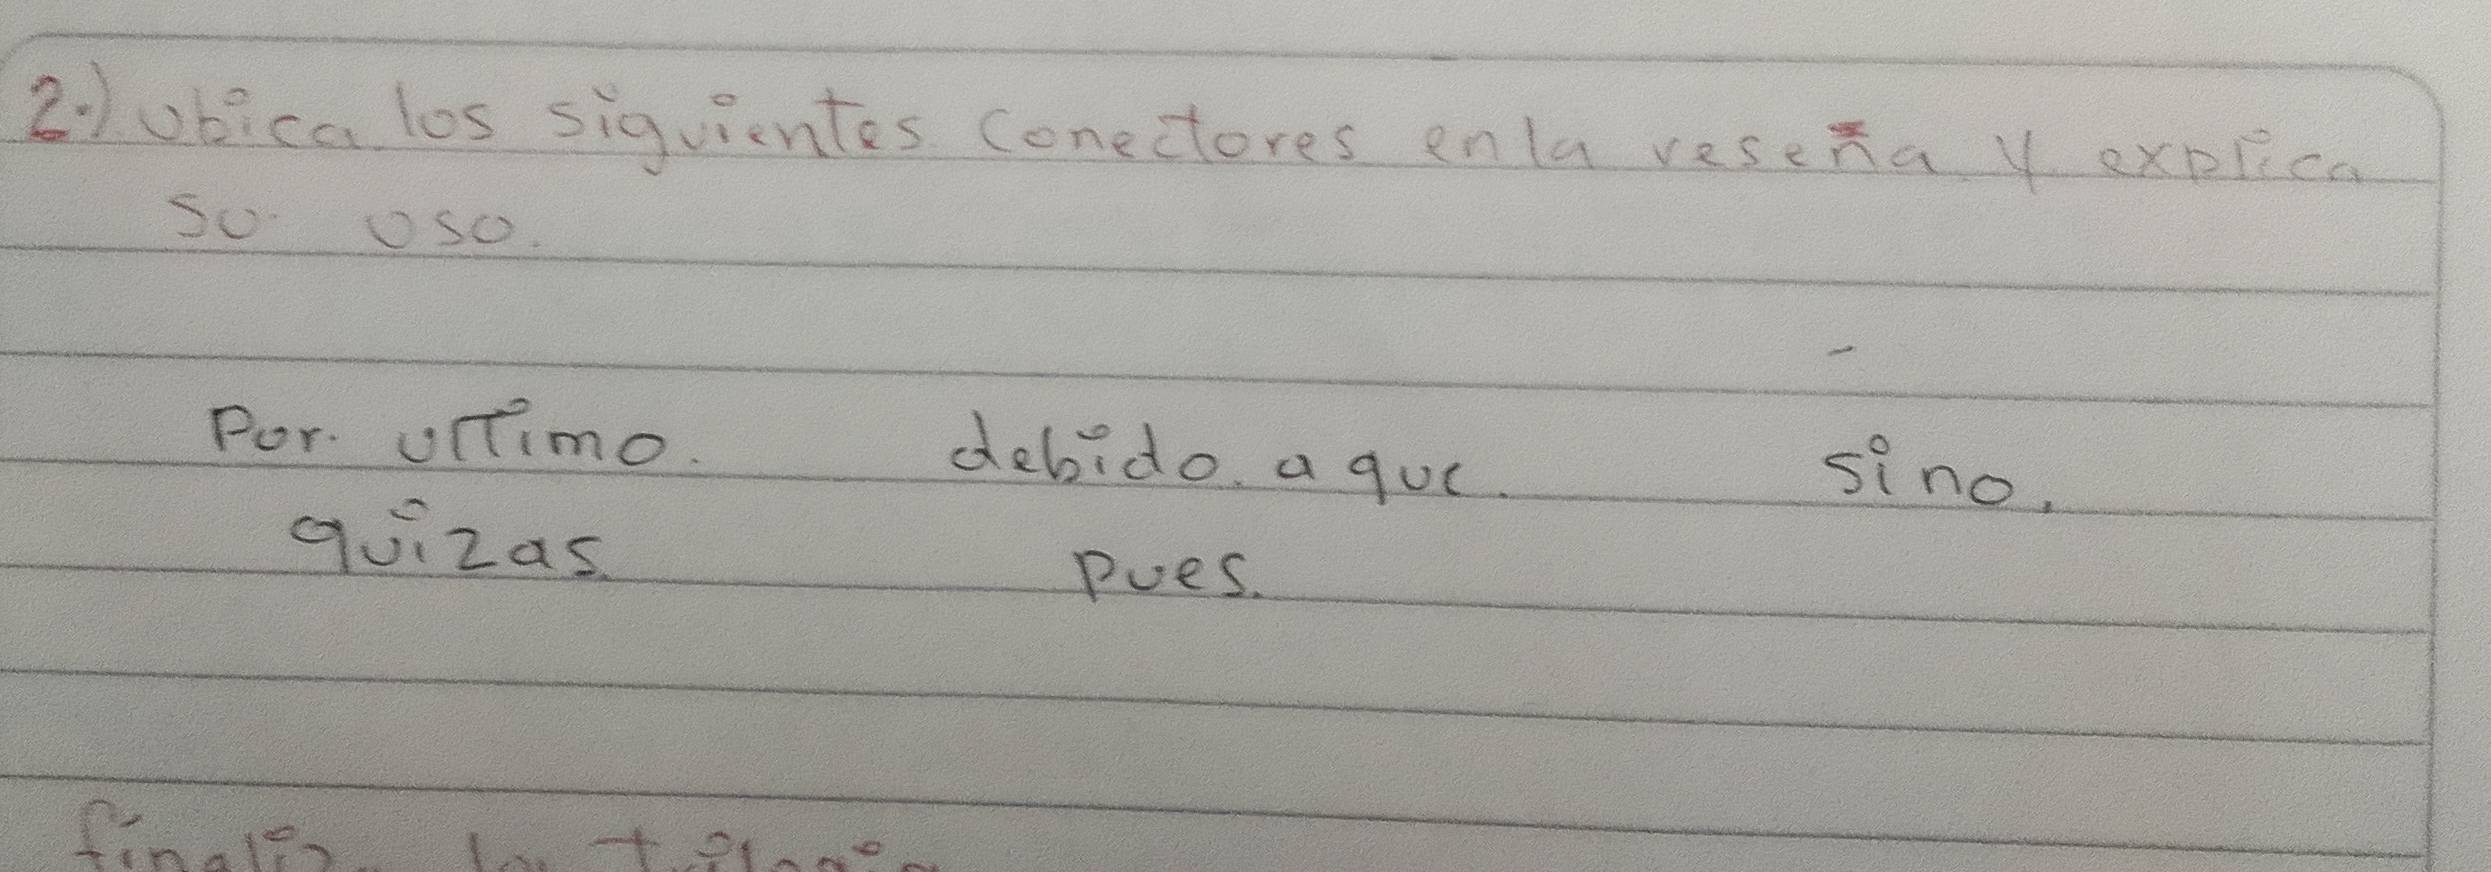 2.) Ubica los siguientes conectores en la reseña y explica
su uso.
Por ultimo. debido a que. sino.
quizas pues.
finaliza la trilogia